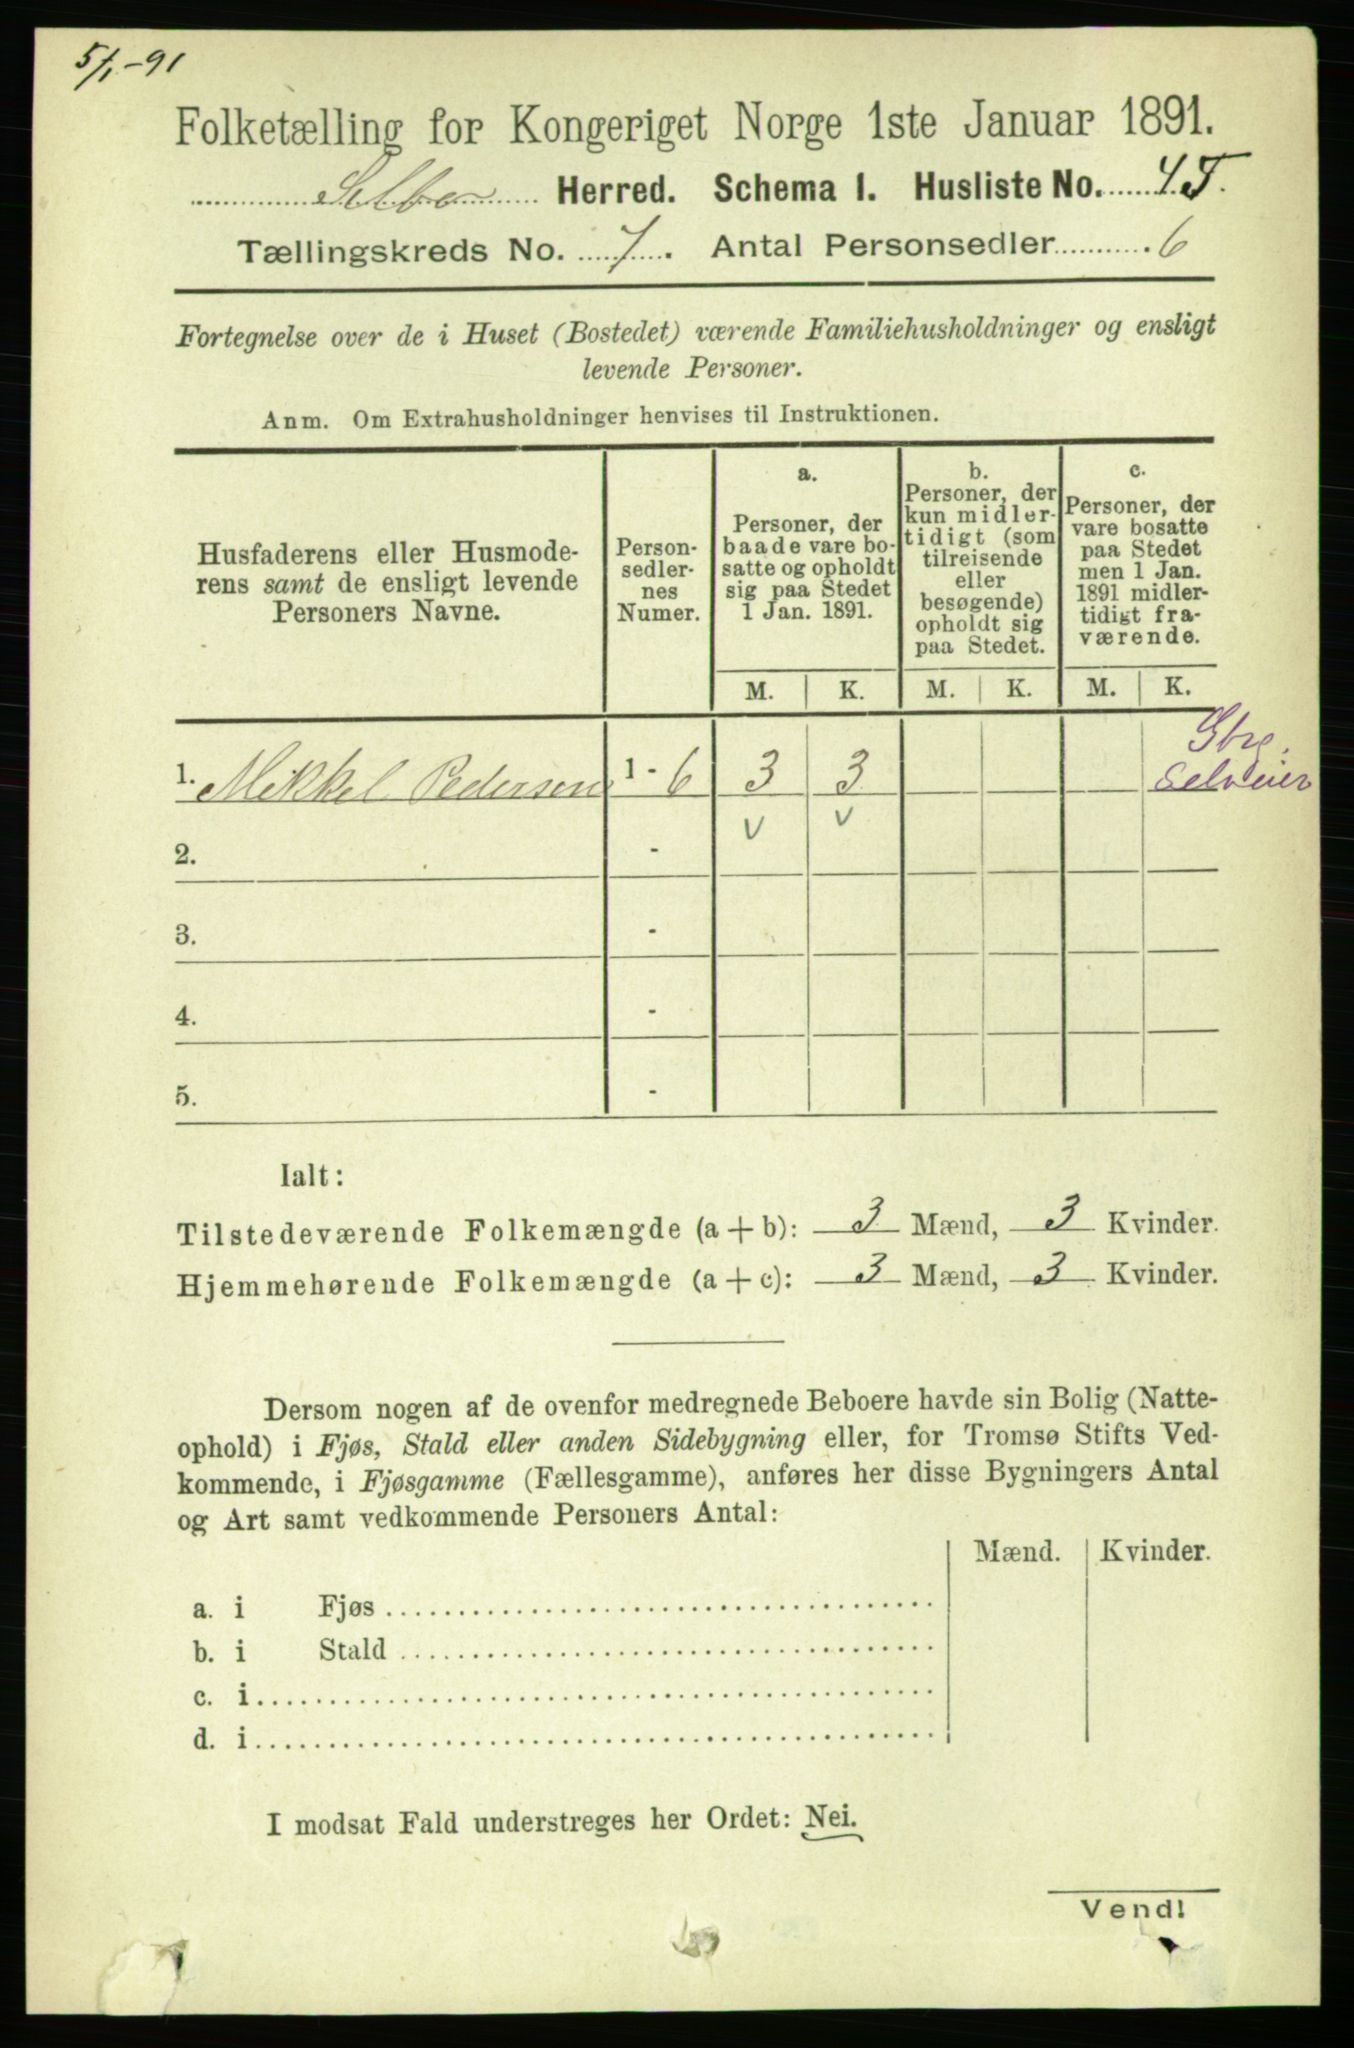 5/1-91
Folketælling for Kongeriget Norge 1ste Januar 1891.
Selbo Herred. Schema 1. Husliste No. 45.
Tællingskreds No. 7. Antal Personsedler 6
Fortegnelse over de i Huset (Bostedet) værende Familiehusholdninger og ensligt
levende Personer.
Anm. Om Extrahusholdninger henvises til Instruktionen.
Husfaderens eller Husmode-
rens samt de ensligt levende
Personers Navne.
Person-
sedler-
nes
Numer.
a.
Personer, der
baade vare bo-
satte og opholdt
sig paa Stedet
1 Jan. 1891.
b.
Personer, der
kun midler-
tidigt (som
tilreisende
eller
besøgende)
opholdt sig
paa Stedet.
c.
Personer, der
vare bosatte
paa Stedet
men 1 Jan.
1891 midler-
tidigt fra-
værende.
M. K. M. K. M. K.
Gbr.
1. Mikkel Pedersen 1 - 6 3 3 Selveier
v v
2. -
3. -
4. -
5. -
Ialt:
Tilstedeværende Folkemængde (a + b): 3 Mænd, 3 Kvinder.
Hjemmehørende Folkemængde (a + c): 3 Mænd, 3 Kvinder.
Dersom nogen af de ovenfor medregnede Beboere havde sin Bolig (Natte-
ophold) i Fjøs, Stald eller anden Sidebygning eller, for Tromsø Stifts Ved-
kommende, i Fjøsgamme (Fællesgamme), anføres her disse Bygningers Antal
og Art samt vedkommende Personers Antal:
Mænd. Kvinder.
a. i Fjøs
b. i Stald
c. i
d. i
I modsat Fald understreges her Ordet: Nei.
Vend!